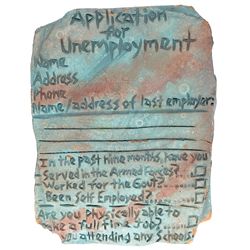 Application
for
Unemployment
Name
Address
Phone
Name/address of last employer:
In the past nine months, have you
-Served in the Armed Forces?....
Worked for the Gov't?.....
Been Self Employed?.....
Are you physically able to
take a full time job?.....
you attending any School